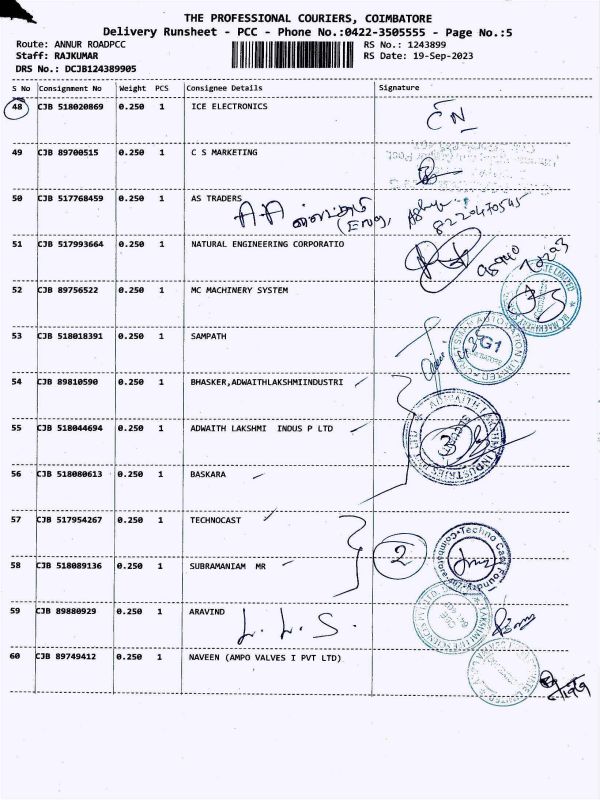 THE PROFESSIONAL COURIERS, COIMBATORE
Delivery Runsheet - PCC - Phone No.:0422-3505555 - Page No.:5
Route: ANNUR ROADPCC RS No.: 1243899
Staff: RAJKUMAR RS Date: 19-Sep-2023
DRS No.: DCJB124389905
S No Consignment No Weight PCS Consignee Details Signature
48 CJB 518020869 0.250 1 ICE ELECTRONICS
49 CJB 89700515 0.250 1 C S MARKETING
50 CJB 517768459 0.250 1 AS TRADERS
8220470545
51 CJB 517993664 0.250 1 NATURAL ENGINEERING CORPORATIO
52 CJB 89756522 0.250 1 MC MACHINERY SYSTEM
53 CJB 518018391 0.250 1 SAMPATH
G1
54 CJB 89810590 0.250 1 BHASKER,ADWAITHLAKSHMIINDUSTRI
55 CJB 518044694 0.250 1 ADWAITH LAKSHMI INDUS P LTD
3
56 CJB 518080613 0.250 1 BASKARA
57 CJB 517954267 0.250 1 TECHNOCAST
2
58 CJB 518089136 0.250 1 SUBRAMANIAM MR
59 CJB 89880929 0.250 1 ARAVIND
L. L. S.
60 CJB 89749412 0.250 1 NAVEEN (AMPO VALVES I PVT LTD)